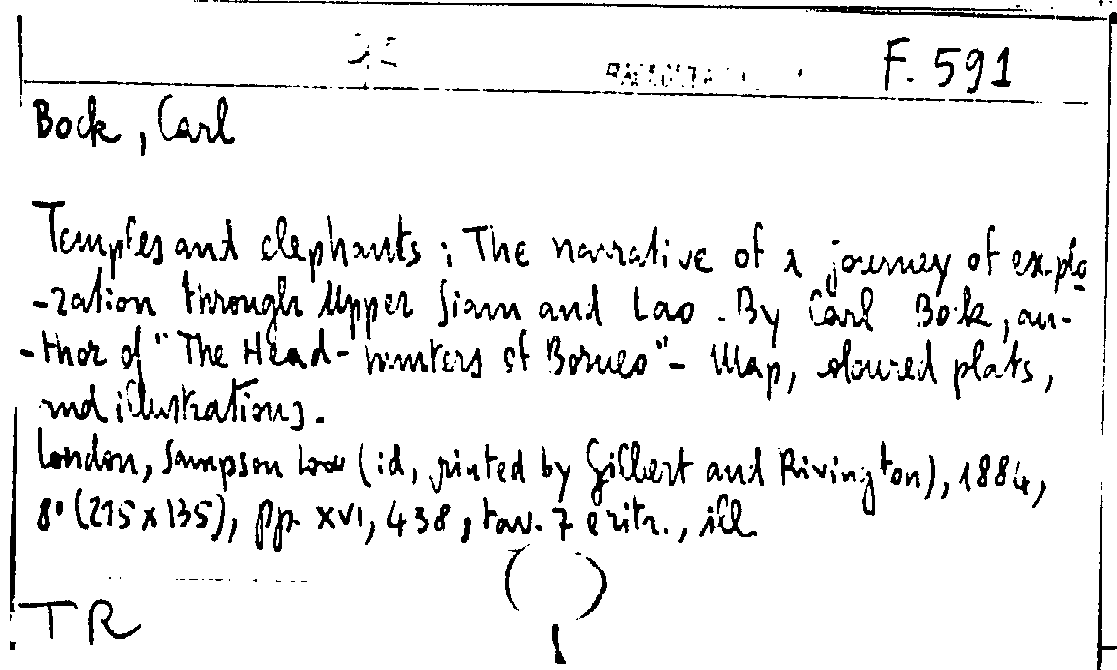 F. 591
Bock, Carl
Temples and elephants; The narrative of a journey of explo
-ration through Upper Siam and Lao. By Carl Bock, au-
-thor of "The Head-hunters of Borneo" - Map, oloured plats,
and illustrations.
London, Sampson Low (id, printed by Gilbert and Rivington), 1884,
8° (215x135), pp. XVI, 438, tav. 7 e ritr., ill.
TR